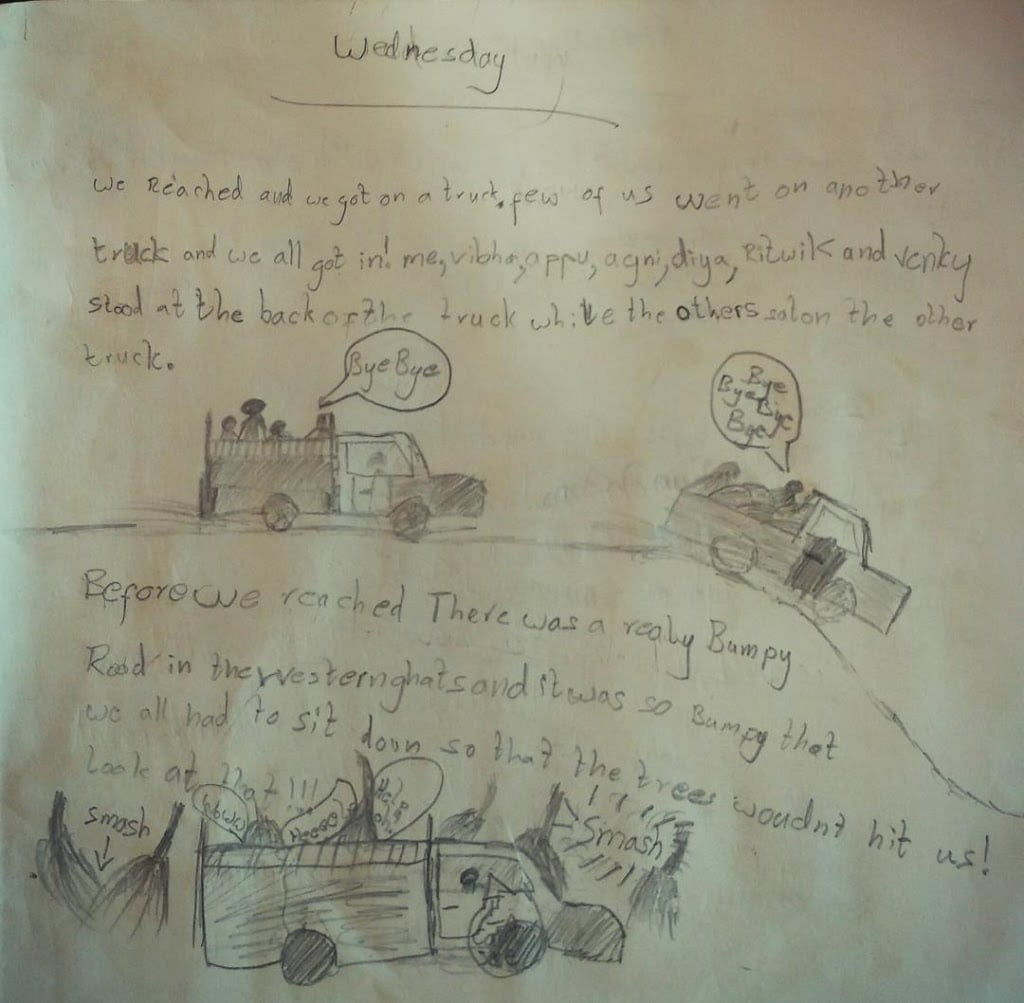 Wednesday
we Reached and we got on a truck. few of us went on another
truck and we all got in! me, vibha, appu, agni, diya, Ritwik and venky
stood at the back of the truck while the others sat on the other
truck.
Bye Bye
Bye
Bye Bye
Bye
Before we reached There was a realy Bumpy
Road in the westernghats and it was so Bumpy that
we all had to sit down so that the trees woudnt hit us!
Look at that!!!
Smash
Help
Smash